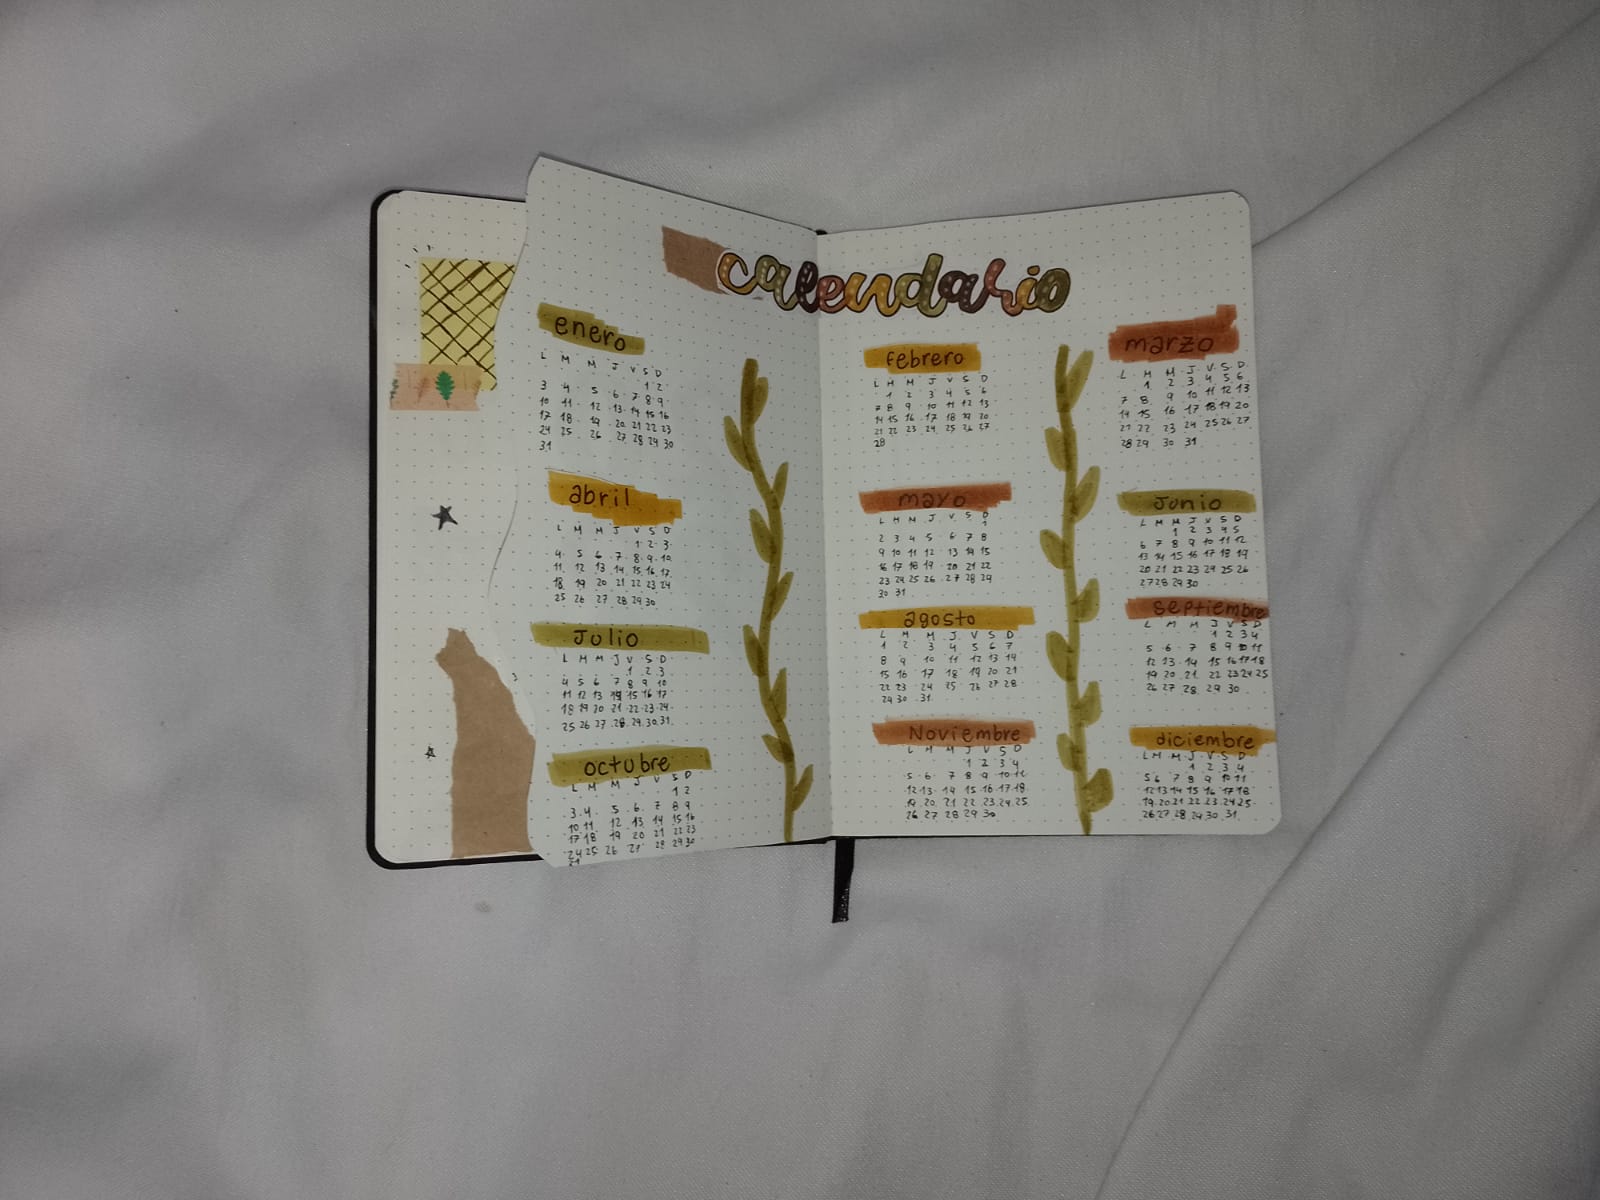 calendario
enero
L M M J V S D
1 2
3 4 5 6 7 8 9
10 11 12 13 14 15 16
17 18 19 20 21 22 23
24 25 26 27 28 29 30
31
abril
L M M J V S D
1 2 3
4 5 6 7 8 9 10
11 12 13 14 15 16 17
18 19 20 21 22 23 24
25 26 27 28 29 30
Julio
L M M J V S D
1 2 3
4 5 6 7 8 9 10
11 12 13 14 15 16 17
18 19 20 21 22 23 24
25 26 27 28 29 30 31
octubre
L M M J V S D
1 2
3 4 5 6 7 8 9
10 11 12 13 14 15 16
17 18 19 20 21 22 23
24 25 26 27 28 29 30
31
febrero
L M M J V S D
1 2 3 4 5 6
7 8 9 10 11 12 13
14 15 16 17 18 19 20
21 22 23 24 25 26 27
28
marzo
L M M J V S D
1 2 3 4 5 6
7 8 9 10 11 12 13
14 15 16 17 18 19 20
21 22 23 24 25 26 27
28 29 30 31
mayo
L M M J V S D
1
2 3 4 5 6 7 8
9 10 11 12 13 14 15
16 17 18 19 20 21 22
23 24 25 26 27 28 29
30 31
Junio
L M M J V S D
1 2 3 4 5
6 7 8 9 10 11 12
13 14 15 16 17 18 19
20 21 22 23 24 25 26
27 28 29 30
agosto
L M M J V S D
1 2 3 4 5 6 7
8 9 10 11 12 13 14
15 16 17 18 19 20 21
22 23 24 25 26 27 28
29 30 31
septiembre
L M M J V S D
1 2 3 4
5 6 7 8 9 10 11
12 13 14 15 16 17 18
19 20 21 22 23 24 25
26 27 28 29 30
Noviembre
L M M J V S D
1 2 3 4
5 6 7 8 9 10 11
12 13 14 15 16 17 18
19 20 21 22 23 24 25
26 27 28 29 30
diciembre
L M M J V S D
1 2 3 4
5 6 7 8 9 10 11
12 13 14 15 16 17 18
19 20 21 22 23 24 25
26 27 28 29 30 31